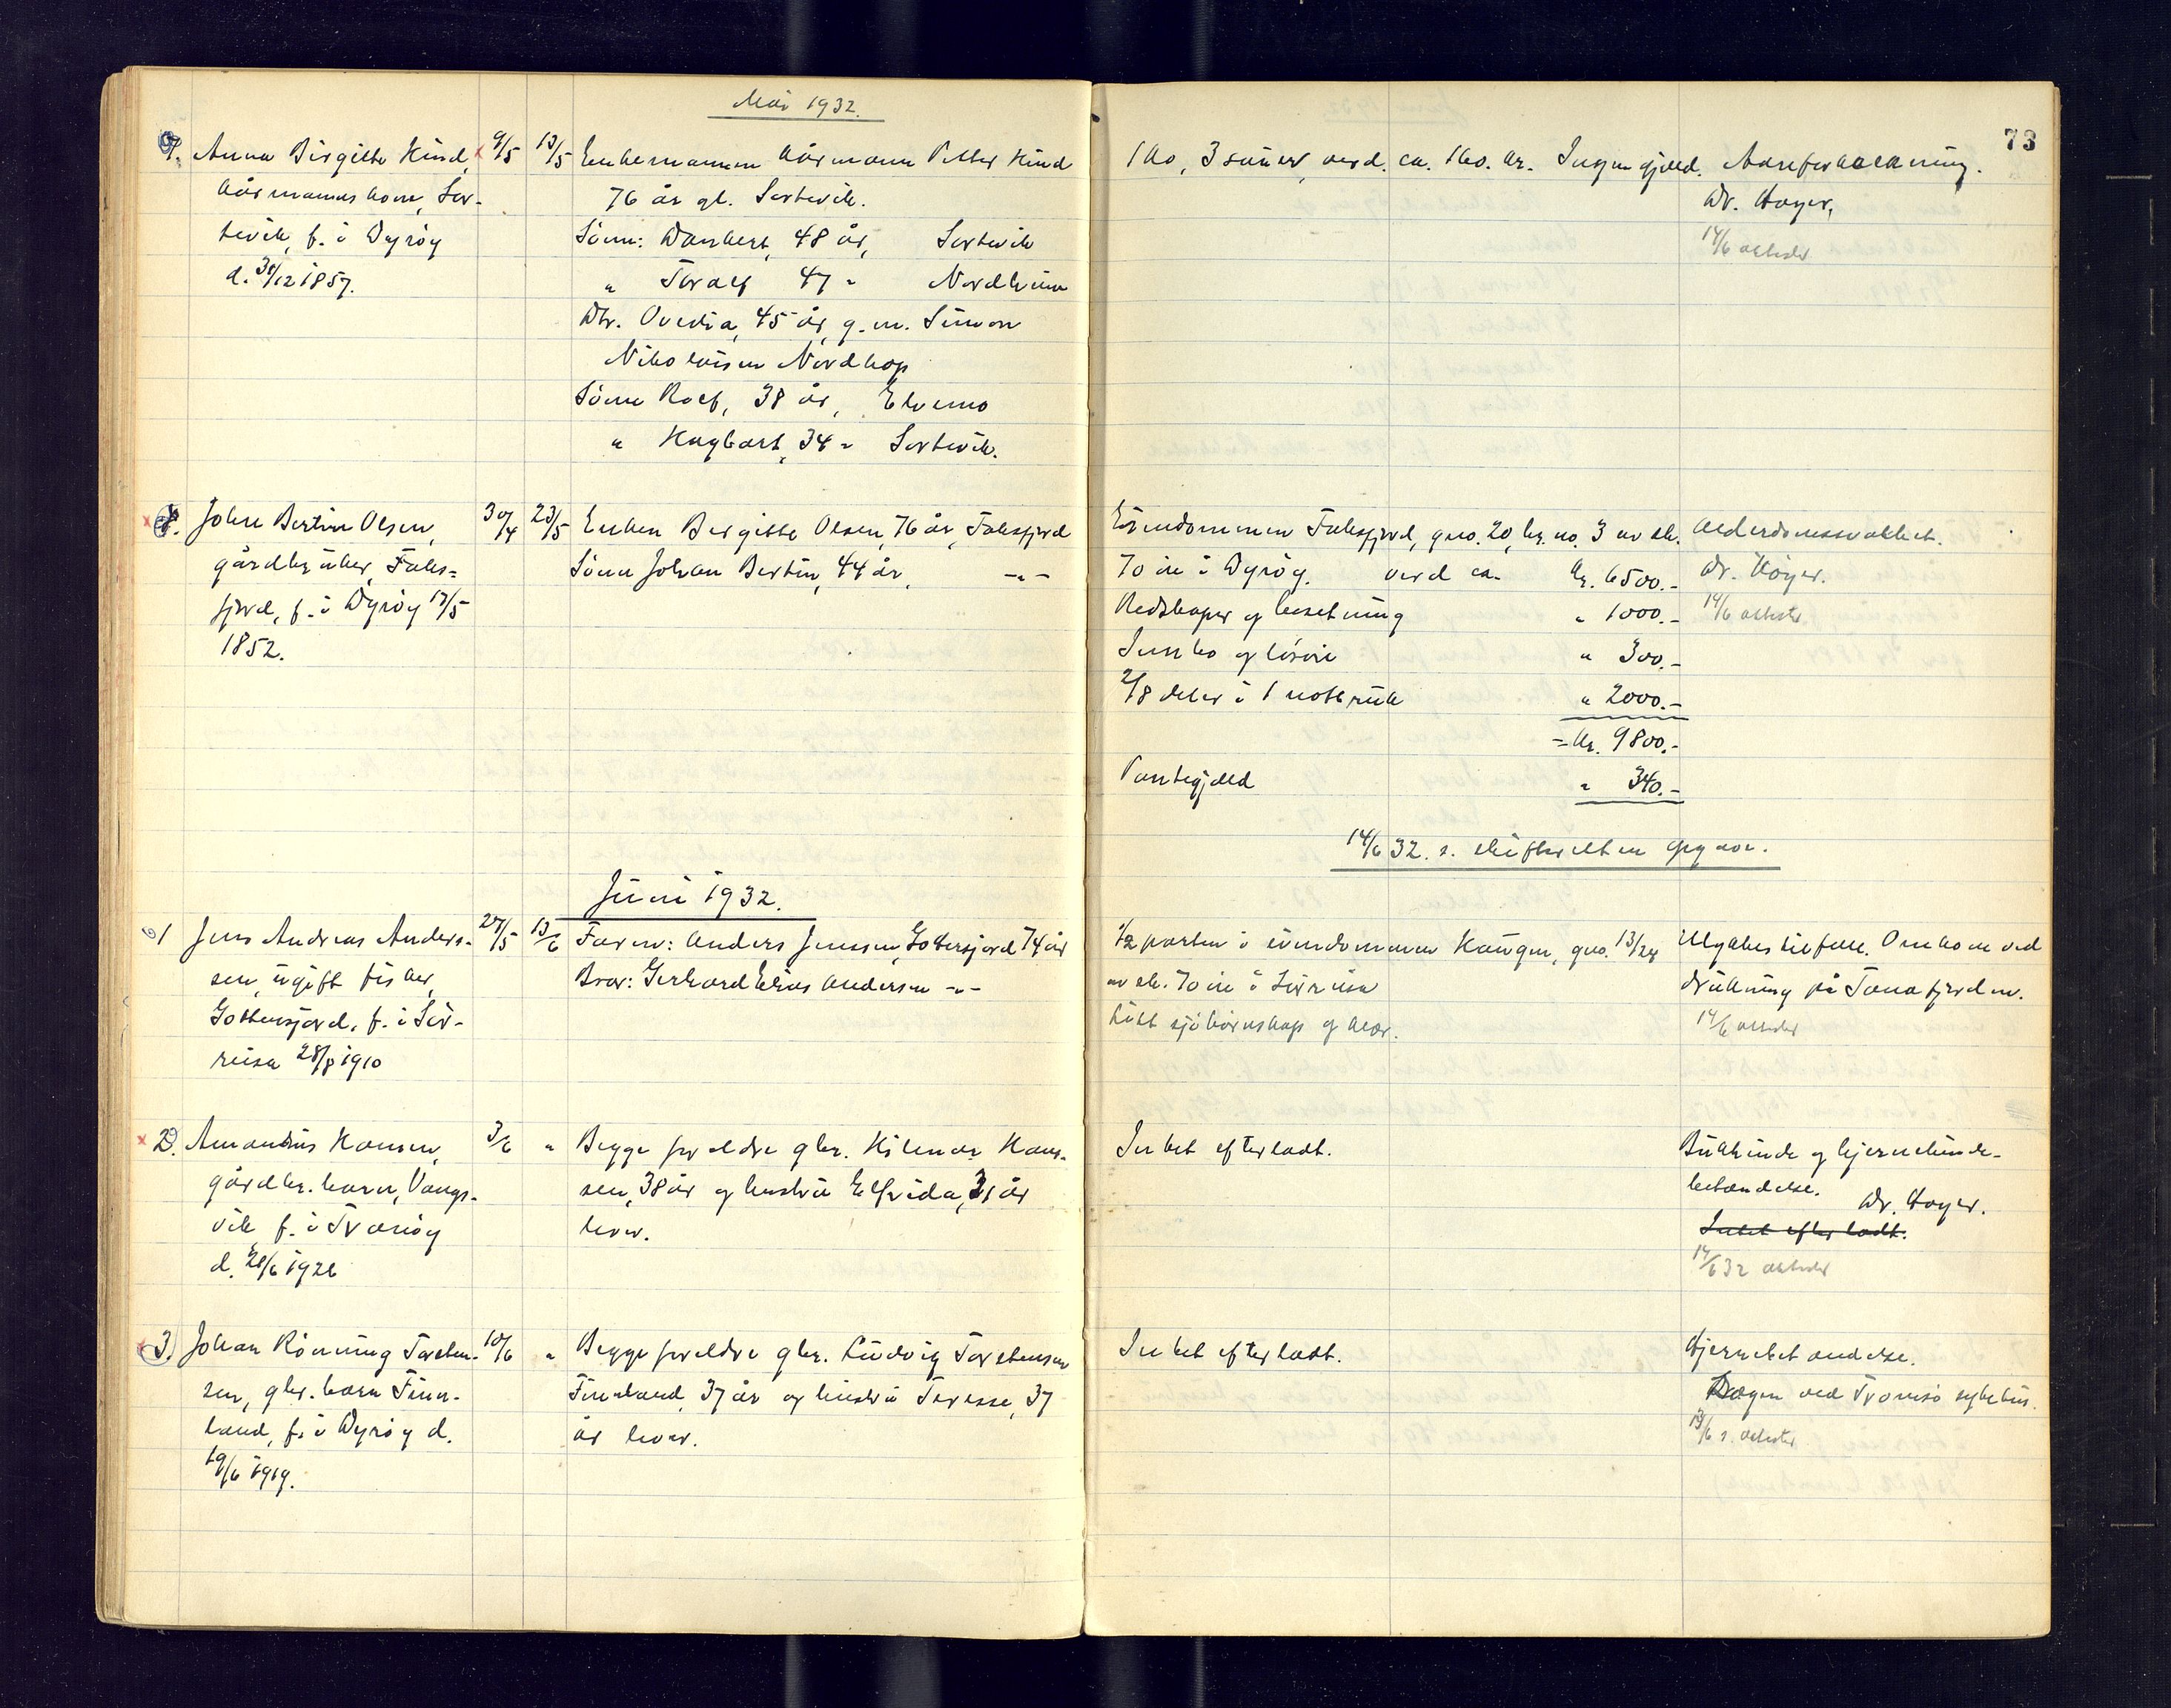 Mai 1932.
73
7. Anna Birgitte Hind,
kårmannskone, Sør-
tevik, f. i Dyrøy
d. 30/12 1857.
9/5
13/5
Enkemannen kårmann Petter Hind
76 år gl. Sørtevik.
Sønn: Danbert, 48 år, Sørtevik
" Toralf 47 " Nordheim
Dtr. Ovedia, 45 år, g. m. Simon
Nikolaisen Nordhop
Sønn Rolf, 38 år, Elvemo
" Hagbart, 34 " Sørtevik.
1 ko, 3 sauer, verd. ca. 160. kr. Ingen gjæld.
Aareforkalkning.
Dr. Høyer,
14/6 attester
8. Johan Bertin Olsen,
gårdbruker, Faks-
fjord, f. i Dyrøy 17/5
1852.
30/4
23/5
Enken Birgitte Olsen, 76 år, Faksfjord
Sønn Johan Bertin, 44 år, -"-
Eiendommen Faksfjord, gno. 20, br. no. 3 av sk.
70 øre i Dyrøy. verd ca. kr. 6500.-
Redskaper og besetning " 1000.-
Innbo og løsøre " 300.-
2/8 deler i 1 notbruk " 2000.-
= kr. 9800.-
Pantegjæld " 340.-
Alderdomssvakhet.
Dr. Høyer.
14/6 attester
14/6 32. s. skifteretten opgave.
Juni 1932.
1 Jens Andreas Anders-
sen, ugift fisker,
Gottesfjord, f. i Sør-
reisa 28/8 1910
27/5
13/6
Faren: Anders Jenssen, Gottesfjord 74 år
Bror: Gerhard Elias Andersen -"-
1/2 parten i eiendommen Haugen, gno. 13/24
av sk. 70 øre i Sørreisa
Litt sjøbørnskap og klær.
Ulykkestilfelle. Omkom ved
drukning på Tanafjorden.
14/6 attester
2. Amandus Hansen,
gårdbr. barn, Vangs-
vik, f. i Tranøy
d. 28/6 1926
3/6
"
Begge foreldre gbr. Hilmar Han-
sen, 38 år og hustru Elfrida, 31 år
lever.
Intet efterladt.
Bukhinde og hjernehinde-
betændelse.
Dr. Høyer.
Intet efterladt.
14/6 32 attester
3. Johan Rønning Torsten-
sen, gbr. barn Finn-
land, f. i Dyrøy d.
19/6 1919.
10/6
"
Begge foreldre gbr. Ludvig Torstensen
Finnland, 37 år og hustru Teresse, 37
år lever.
Intet efterladt.
Hjernebetændelse.
Lægen ved Tromsø sykehus.
13/6 s. attester